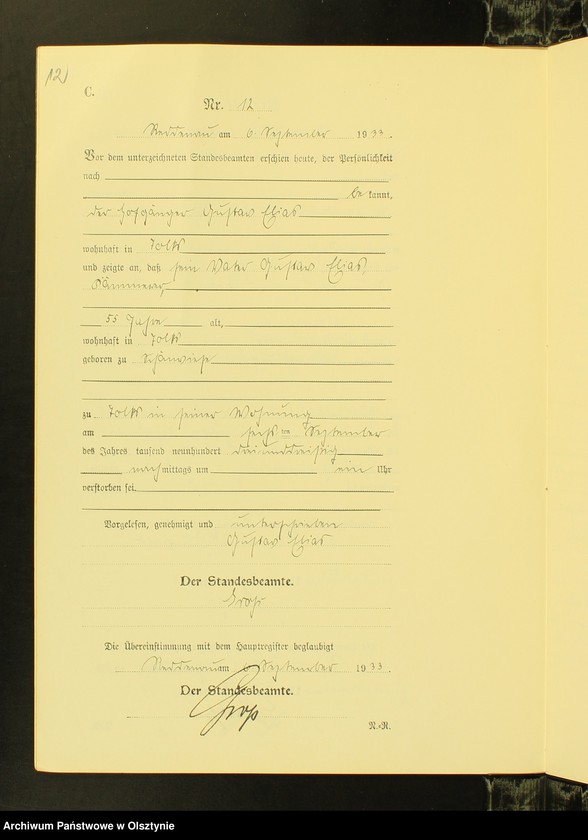 12)
C.
Nr. 12
Reddenau am 6. September 1933.
Vor dem unterzeichneten Standesbeamten erschien heute, der Persönlichkeit
nach
be kannt,
der Hofgänger Gustav Elias
wohnhaft in Tolks
und zeigte an, daß sein Vater Gustav Elias,
Kämmerer,
55 Jahre alt,
wohnhaft in Tolks
geboren zu Schönwiese
zu Tolks in seiner Wohnung
am sechsten September
des Jahres tausend neunhundert dreiunddreißig
nachmittags um ein Uhr
verstorben sei.
Vorgelesen, genehmigt und unterschrieben
Gustav Elias
Der Standesbeamte.
Groß
Die Übereinstimmung mit dem Hauptregister beglaubigt
Reddenau am 6. September 1933.
Der Standesbeamte.
Groß
R.-R.
Archiwum Państwowe w Olsztynie